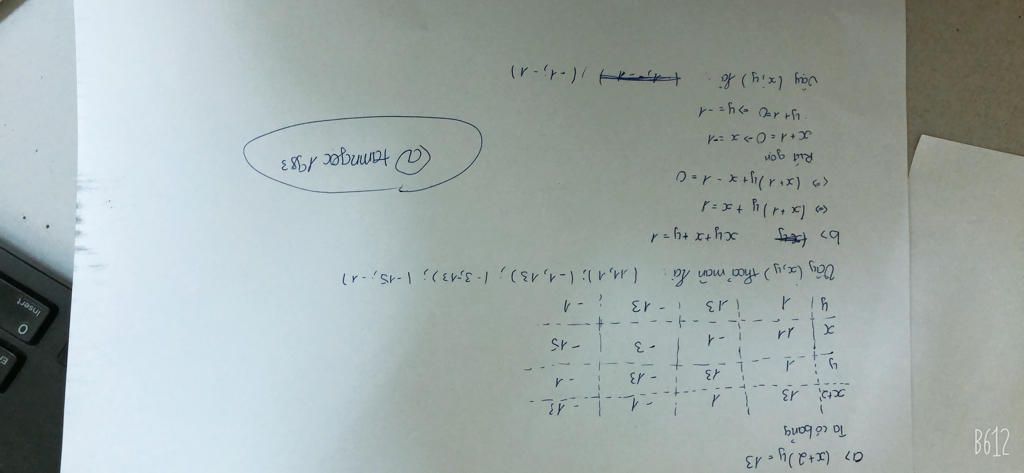 a> (x+2)y = 13
Ta có bảng
x+2 | 13 | 1 | -1 | -13
y | 1 | 13 | -13 | -1
x | 11 | -1 | -3 | -15
y | 1 | 13 | -13 | -1
Vậy (x,y) thoả mãn là: (11,1); (-1,13); (-3,-13); (-15,-1)
b> xy+x+y=1
<=> (x+1)y+x=1
<=> (x+1)y+x-1=0
Rút gọn
x+1=0 -> x=-1
y+1=0 => y=-1
Vậy (x;y) là: (1,-1); (-1;-1)
@tamngoc1983
Insert
0
En
B612